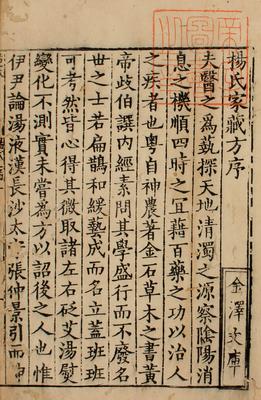 楊氏家藏方序
夫醫之為埶探天地清濁之源察陰陽消
息之機順四時之宜藉百藥之功以治人
之疾者也粵自神農著金石草木之書黃
帝歧伯譔內經素問其學盛行而不廢名
世之士若扁鵲和緩埶成而名立蓋班班
可考然皆心得其微取諸左右砭艾湯熨
變化不測實未甞為方以詔後之人也惟
伊尹論湯液漢長沙太守張仲景引而
金澤文庫